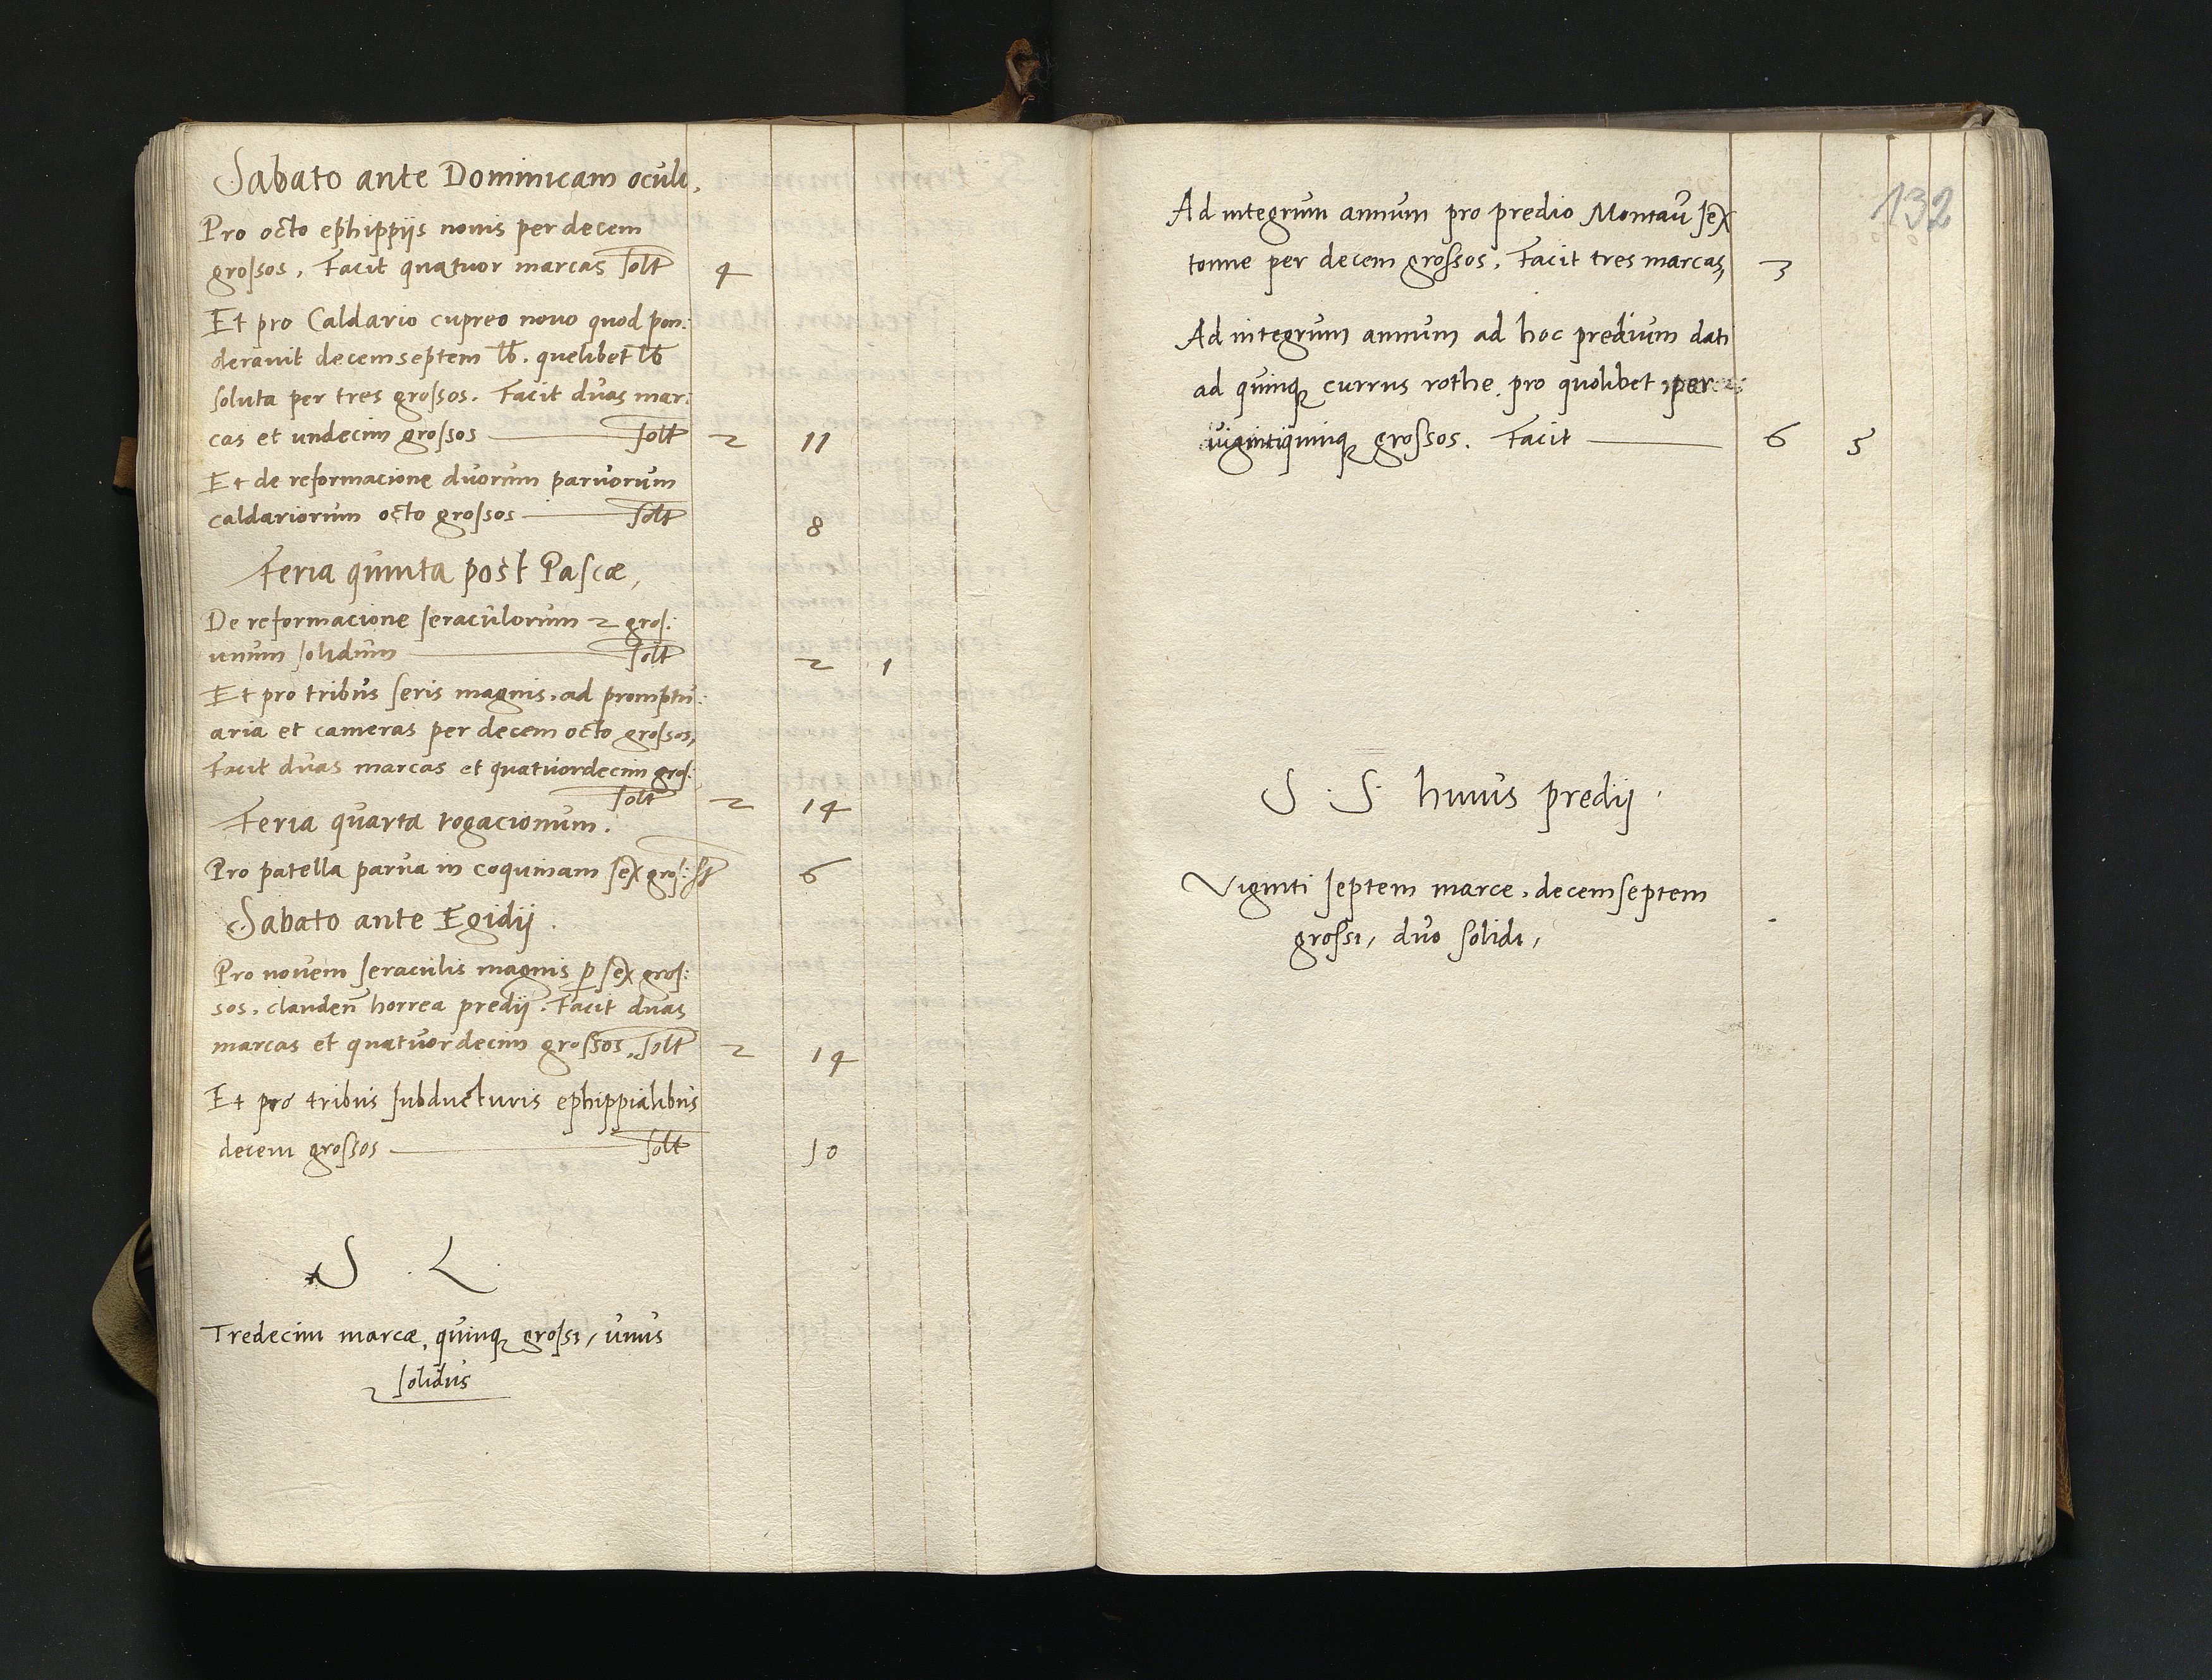 Sabato ante Dominicam oculi,
Pro octo ephippijs novis per decem
grossos. Facit quatuor marcas solt 4
Et pro Caldario cupreo novo quod pon:
deravit decemseptem lb. quelibet lb
soluta per tres grossos. Facit duas mar:
cas et undecim grossos solt 2 11
Et de reformacione duorum parvorum
caldariorum octo grossos solt 8
Feria quinta post Pascæ,
De reformacione seraculorum 2 gros:
unum solidum solt 2 1
Et pro tribus seris magnis, ad promptu:
aria et cameras per decem octo grossos,
Facit duas marcas et quatuordecim gros:
solt 2 14
Feria quarta rogacionum.
Pro patella parva in coquinam sex gros: st 6
Sabato ante Egidij.
Pro novem seraculis magnis p sex gros:
sos. clauden horrea predij. Facit duas
marcas et quatuordecim grossos, solt 2 14
Et pro tribus subducturis ephippialibus
decem grossos solt 10
S . L
Tredecim marcæ, quinq grossi, unus
solidus
132
Ad integrum annum pro predio Montau sex
tonne per decem grossos. Facit tres marcas, 3
Ad integrum annum ad hoc predium dati
ad quinq currus rothe. pro quolibet per
vigintiquinq grossos. Facit 6 5
S. S. huius predij.
Viginti septem marce, decemseptem
grossi, duo solidi,